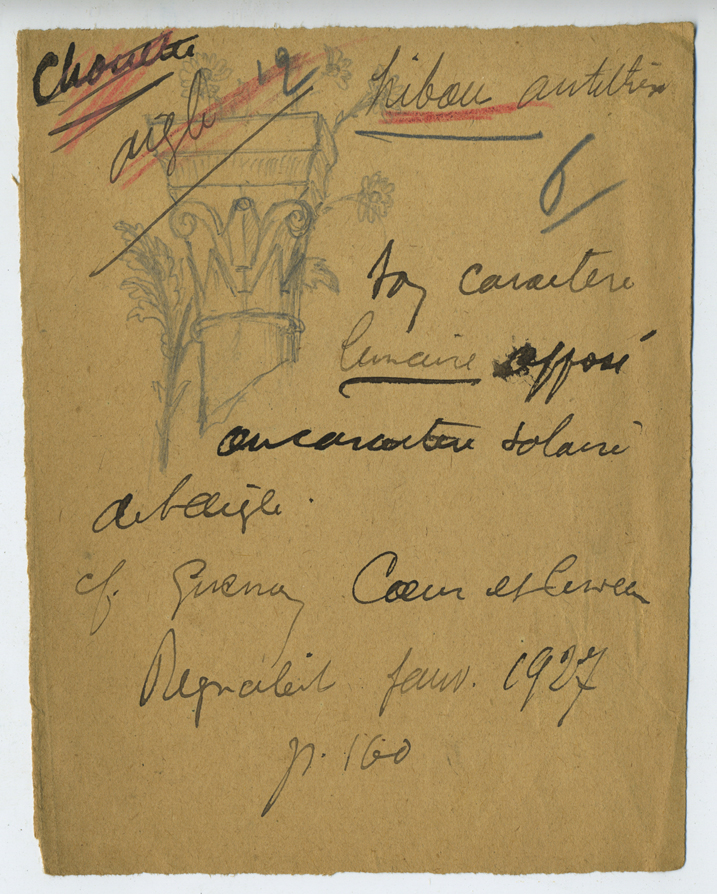 Chouette
aigle 12
hibou
6
son caractère
lunaire opposé
au caractère solaire
de l'aigle.
cf. Guénon Cœur et Cerveau
Regnabit janv. 1927
p. 160